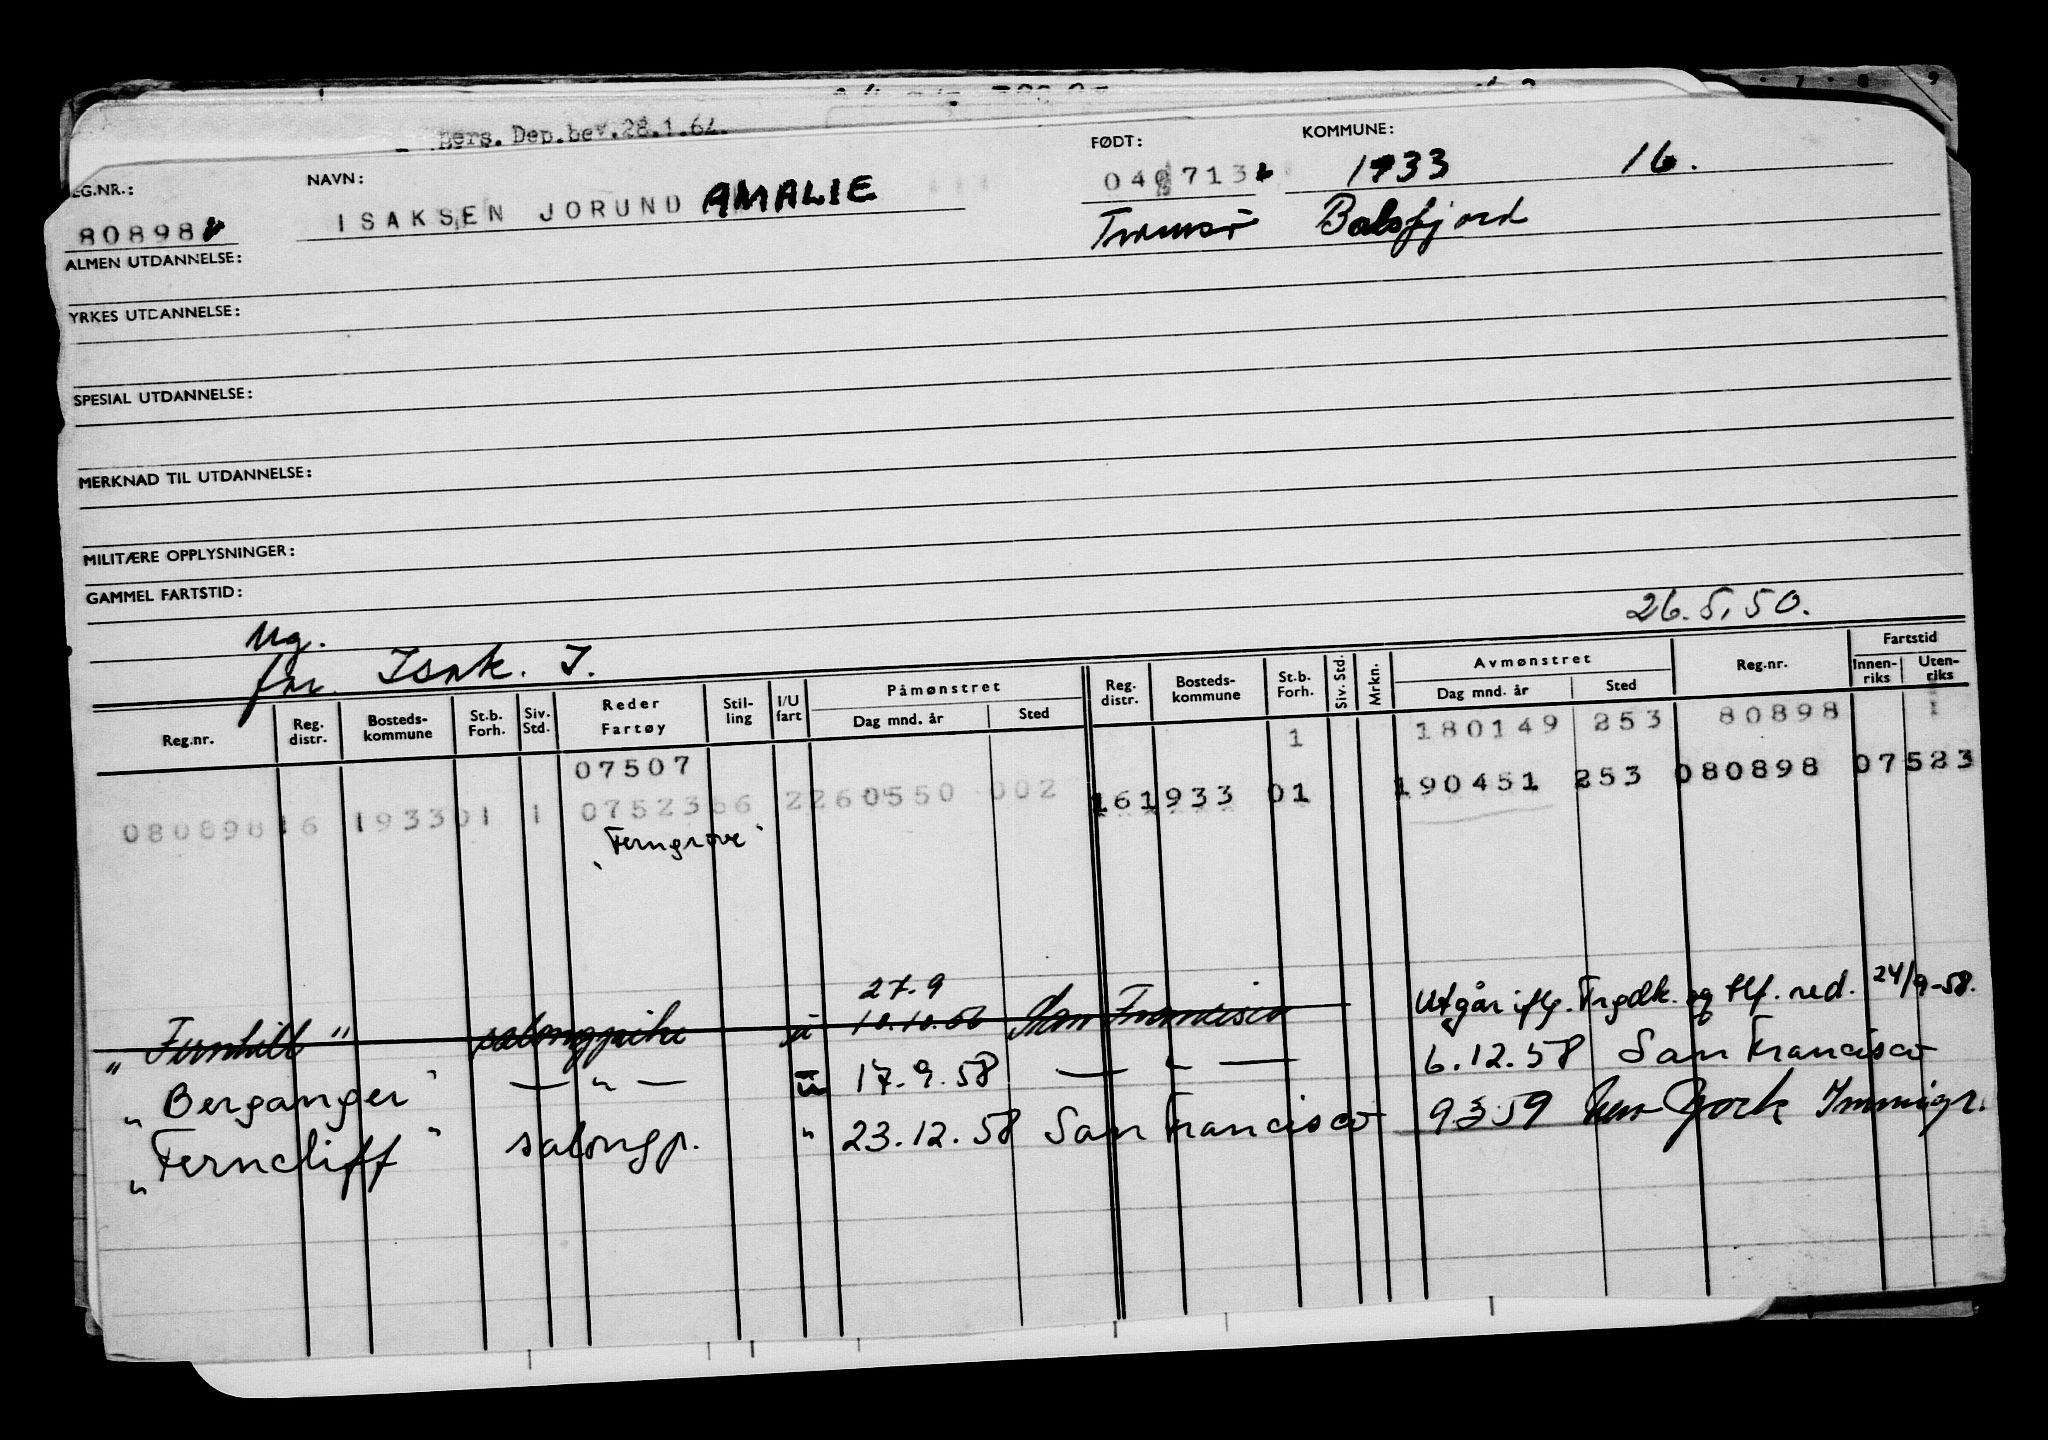 Pers. Dep.bev.28.1.64.
REG.NR.: NAVN: FØDT: KOMMUNE:
80898 ISAKSEN JORUND AMALIE 1933 16.
Tromsø Balsfjord
ALMEN UTDANNELSE:
YRKES UTDANNELSE:
SPESIAL UTDANNELSE:
MERKNAD TIL UTDANNELSE:
MILITÆRE OPPLYSNINGER:
GAMMEL FARTSTID:
26.5.50.
Ug.
far. Isak. I.
Reg.nr. Reg. distr. Bosteds- kommune St.b. Forh. Siv. Std. Reder Fartøy Stil- ling I/U fart Påmønstret Dag mnd. år Sted Reg. distr. Bosteds- kommune St.b. Forh. Siv. Std. Mrkn. Avmønstret Dag mnd. år Sted Reg.nr. Fartstid Innen- riks Uten- riks
07507 1 180149 253 80898 1
080898 16 1933 01 1 07523 66 2 260550 002 16 1933 01 190451 253 080898 07523
"Ferngrove"
27.9
"Fernhill" salongpike u 10.10.56 San Francisco Utgår iflg. Frgdk. og tlf. red. 24/9-58.
"Berganger" — " — u 17.9.58 — " — 6.12.58 San Francisco
"Ferncliff" salongp. " 23.12.58 San Francisco 9 3 59 New York Immigr.